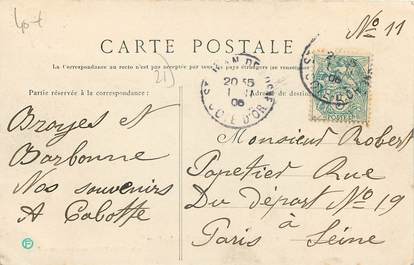 40-t
No 11
CARTE POSTALE
La Correspondance au recto n'est pas acceptée par tous les pays étrangers
Partie réservée à la correspondance:
Adresse du destinataire
219
20 55
06
COTE D'OR
Broyes et
Barbonne
Nos souvenirs
A Cabotte
Monsieur Robert
Papetier Rue
Du Départ No 19
à
Paris Seine